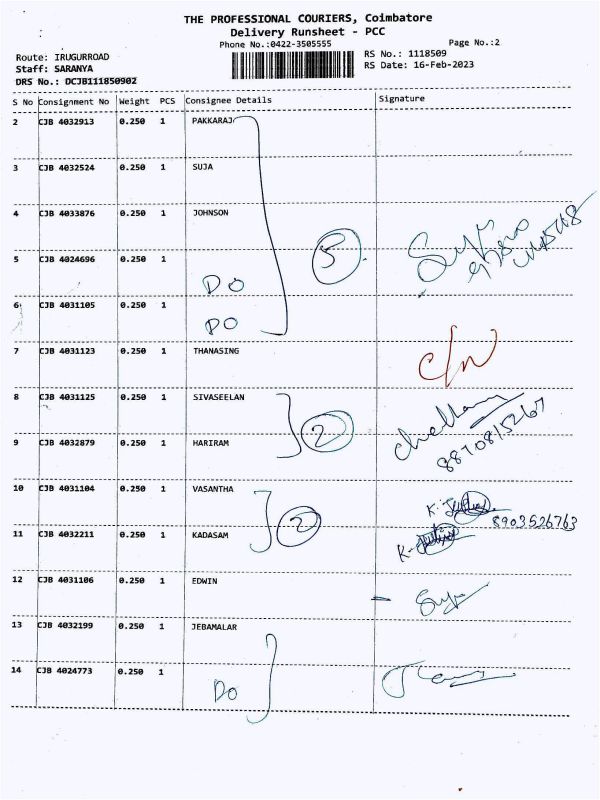 THE PROFESSIONAL COURIERS, Coimbatore
Delivery Runsheet - PCC
Phone No.:0422-3505555
Page No.:2
Route: IRUGURROAD
RS No.: 1118509
Staff: SARANYA
RS Date: 16-Feb-2023
DRS No.: DCJB111850902
S No Consignment No Weight PCS Consignee Details Signature
2 CJB 4032913 0.250 1 PAKKARAJ
3 CJB 4032524 0.250 1 SUJA
4 CJB 4033876 0.250 1 JOHNSON
5
5 CJB 4024696 0.250 1
DO
6 CJB 4031105 0.250 1
DO
7 CJB 4031123 0.250 1 THANASING
C/N
8 CJB 4031125 0.250 1 SIVASEELAN
2
9 CJB 4032879 0.250 1 HARIRAM
8870815267
10 CJB 4031104 0.250 1 VASANTHA
2
8903526763
11 CJB 4032211 0.250 1 KADASAM
12 CJB 4031106 0.250 1 EDWIN
13 CJB 4032199 0.250 1 JEBAMALAR
14 CJB 4024773 0.250 1
DO